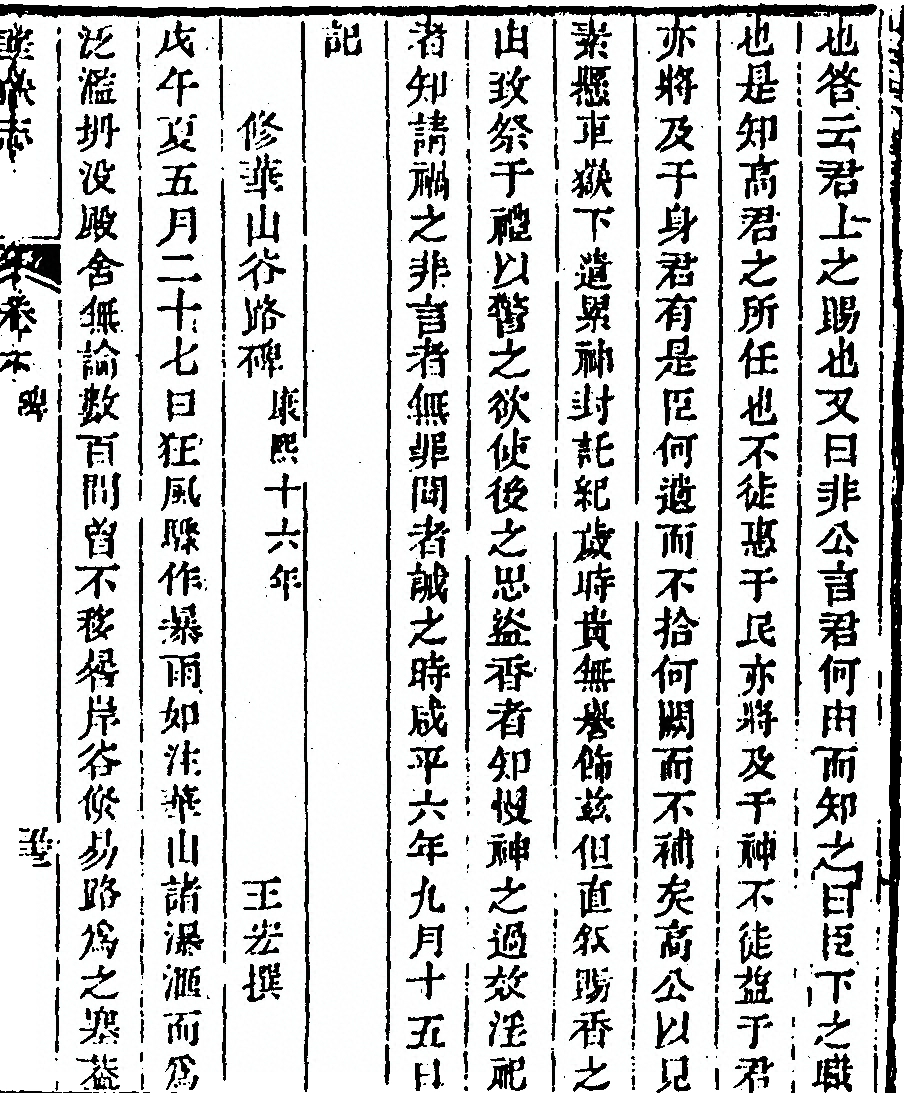 也答云君上之賜也又曰非公言君何由而知之曰臣下之職
也是知高君之所任也不徒惠于民亦將及于神不徒益于君
亦將及于身君有是臣何遺而不拾何闕而不補矣高公以見
素懸車嶽下遺累神封託紀歲時貴無譽飾茲但直叙賜香之
由致祭于禮以警之欲使後之忠盜香者知慢神之過效淫祀
者知請禍之非言者無罪聞者誡之時咸平六年九月十五日
記
修華山谷路碑 康熙十六年 王宏撰
戊午夏五月二十七日狂風驟作暴雨如注華山諸瀑匯而為
泛濫坍没殿舍無論數百間曾不移晷岸谷倏易路為之塞葢
華嶽志 卷六 碑